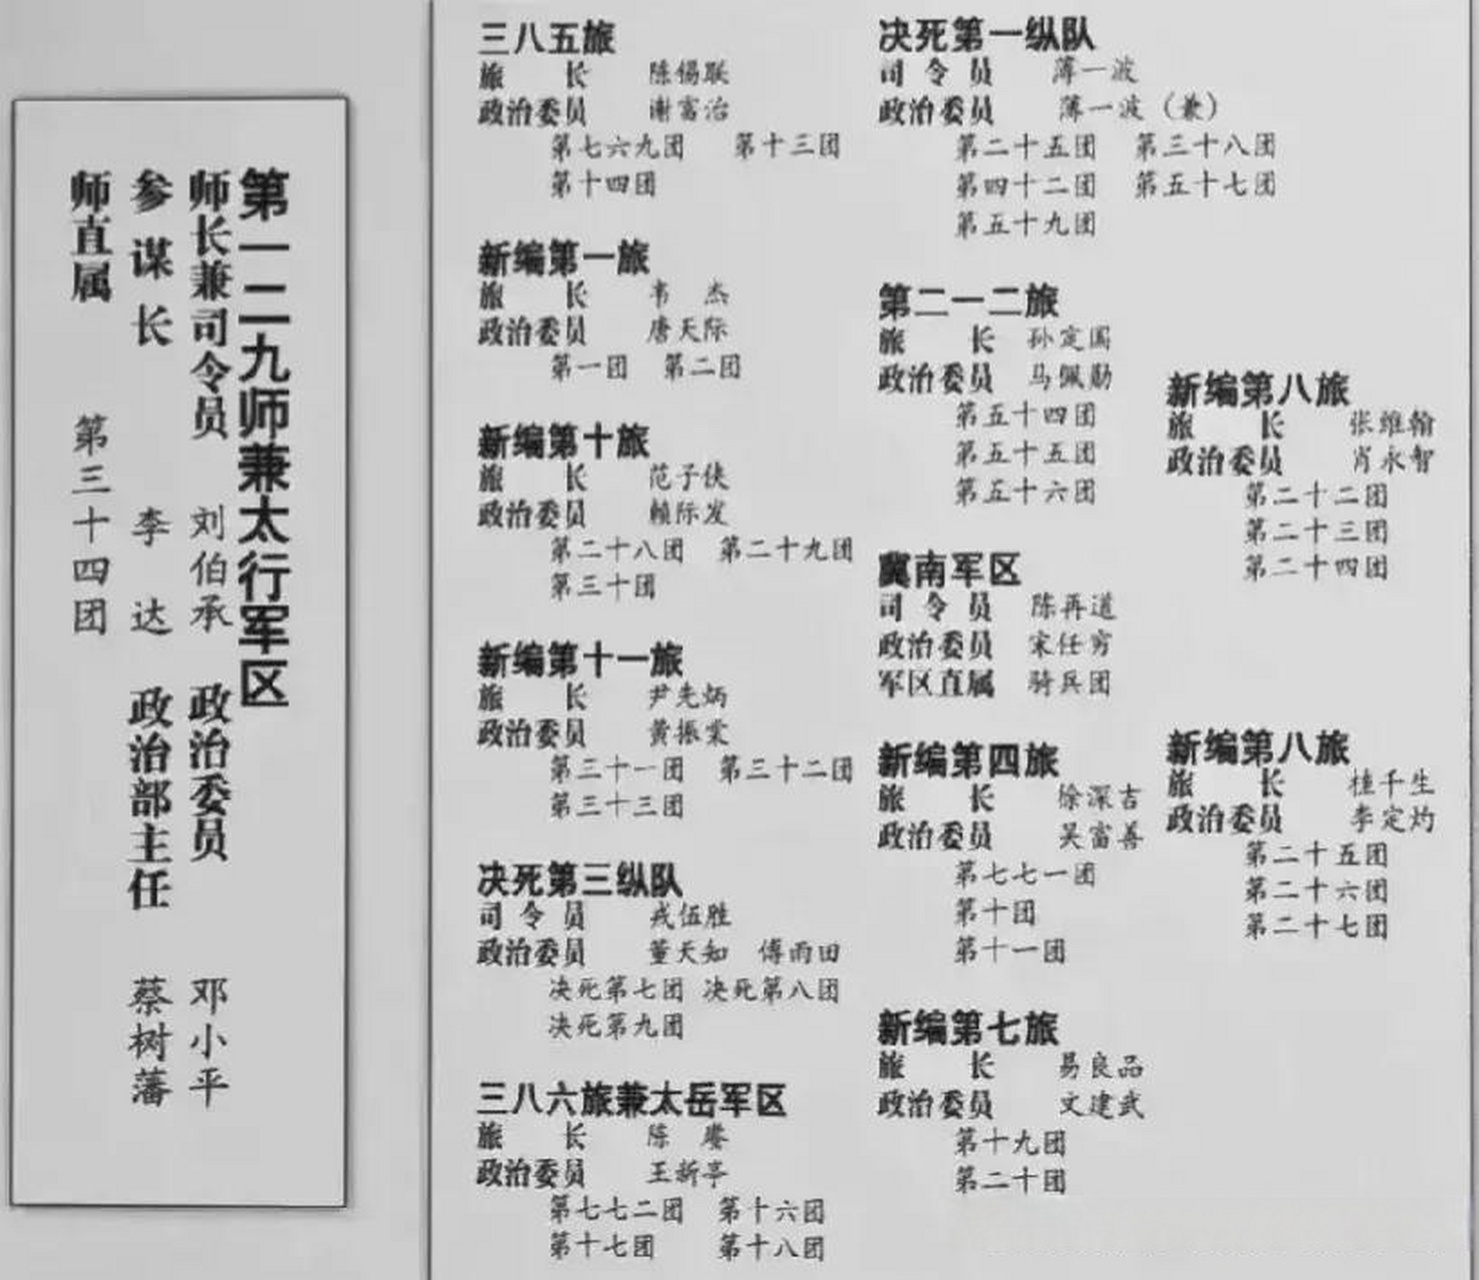 第一二九师兼太行军区
师长兼司令员 刘伯承 政治委员 邓小平
参谋长 李达 政治部主任 蔡树藩
师直属 第三十四团
三八五旅
旅 长 陈锡联
政治委员 谢富治
第七六九团 第十三团
第十四团
新编第一旅
旅 长 韦 杰
政治委员 唐天际
第一团 第二团
新编第十旅
旅 长 范子侠
政治委员 赖际发
第二十八团 第二十九团
第三十团
新编第十一旅
旅 长 尹先炳
政治委员 黄振棠
第三十一团 第三十二团
第三十三团
决死第三纵队
司令员 戎伍胜
政治委员 董天知 傅雨田
决死第七团 决死第八团
决死第九团
三八六旅兼太岳军区
旅 长 陈 赓
政治委员 王新亭
第七七二团 第十六团
第十七团 第十八团
决死第一纵队
司令员 薄一波
政治委员 薄一波（兼）
第二十五团 第三十八团
第四十二团 第五十七团
第五十九团
第二一二旅
旅 长 孙定国
政治委员 马佩勋
第五十四团
第五十五团
第五十六团
冀南军区
司令员 陈再道
政治委员 宋任穷
军区直属 骑兵团
新编第四旅
旅 长 徐深吉
政治委员 吴富善
第七七一团
第十团
第十一团
新编第七旅
旅 长 易良品
政治委员 文建武
第十九团
第二十团
新编第八旅
旅 长 张维翰
政治委员 肖永智
第二十二团
第二十三团
第二十四团
新编第八旅
旅 长 桂千生
政治委员 李定灼
第二十五团
第二十六团
第二十七团